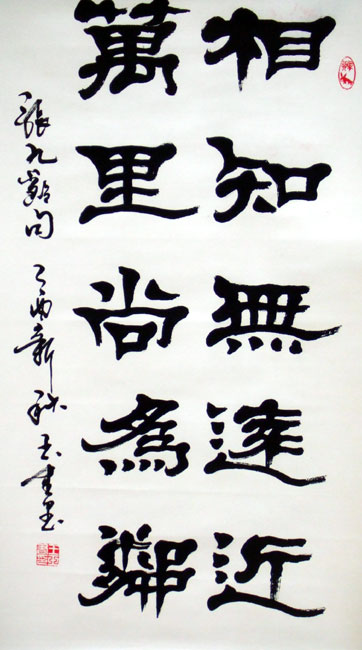 相知無遠近
萬里尚為鄰
張九齡句 新秋